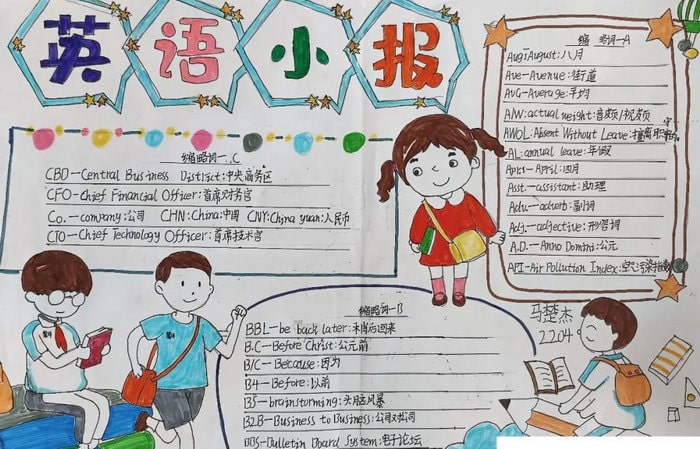 英语小报
缩略词一.C
CBD—Central Business District:中央商务区
CFO—Chief Financial Officer:首席财务官
Co.—company:公司 CHN:China:中国 CNY:China yuan:人民币
CTO—Chief Technology Officer:首席技术官
缩略词一A
Aug:August:八月
Ave—Avenue:街道
AVG—Average:平均
A/W:actual weight:音频/视频
AWOL:Absent Without Leave:擅离职守
AL:annual leave:年假
Apr1—April:四月
Asst.—assistant:助理
Adv.—adverb:副词
Adj.—adjective:形容词
A.D.—Anno Domini:公元
API—Air Pollution Index:空气污染指数
缩略词一B
BBL—be back later:稍后回来
B.C—Before Christ:公元前
B/C—Because:因为
B4—Before:以前
BS—brainstorming:头脑风暴
B2B—Business to Business:公司对公司
BBS—Bulletin Board System:电子论坛
马楚杰
2204